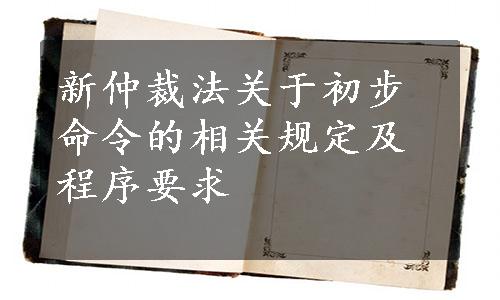 新仲裁法关于初步
命令的相关规定及
程序要求